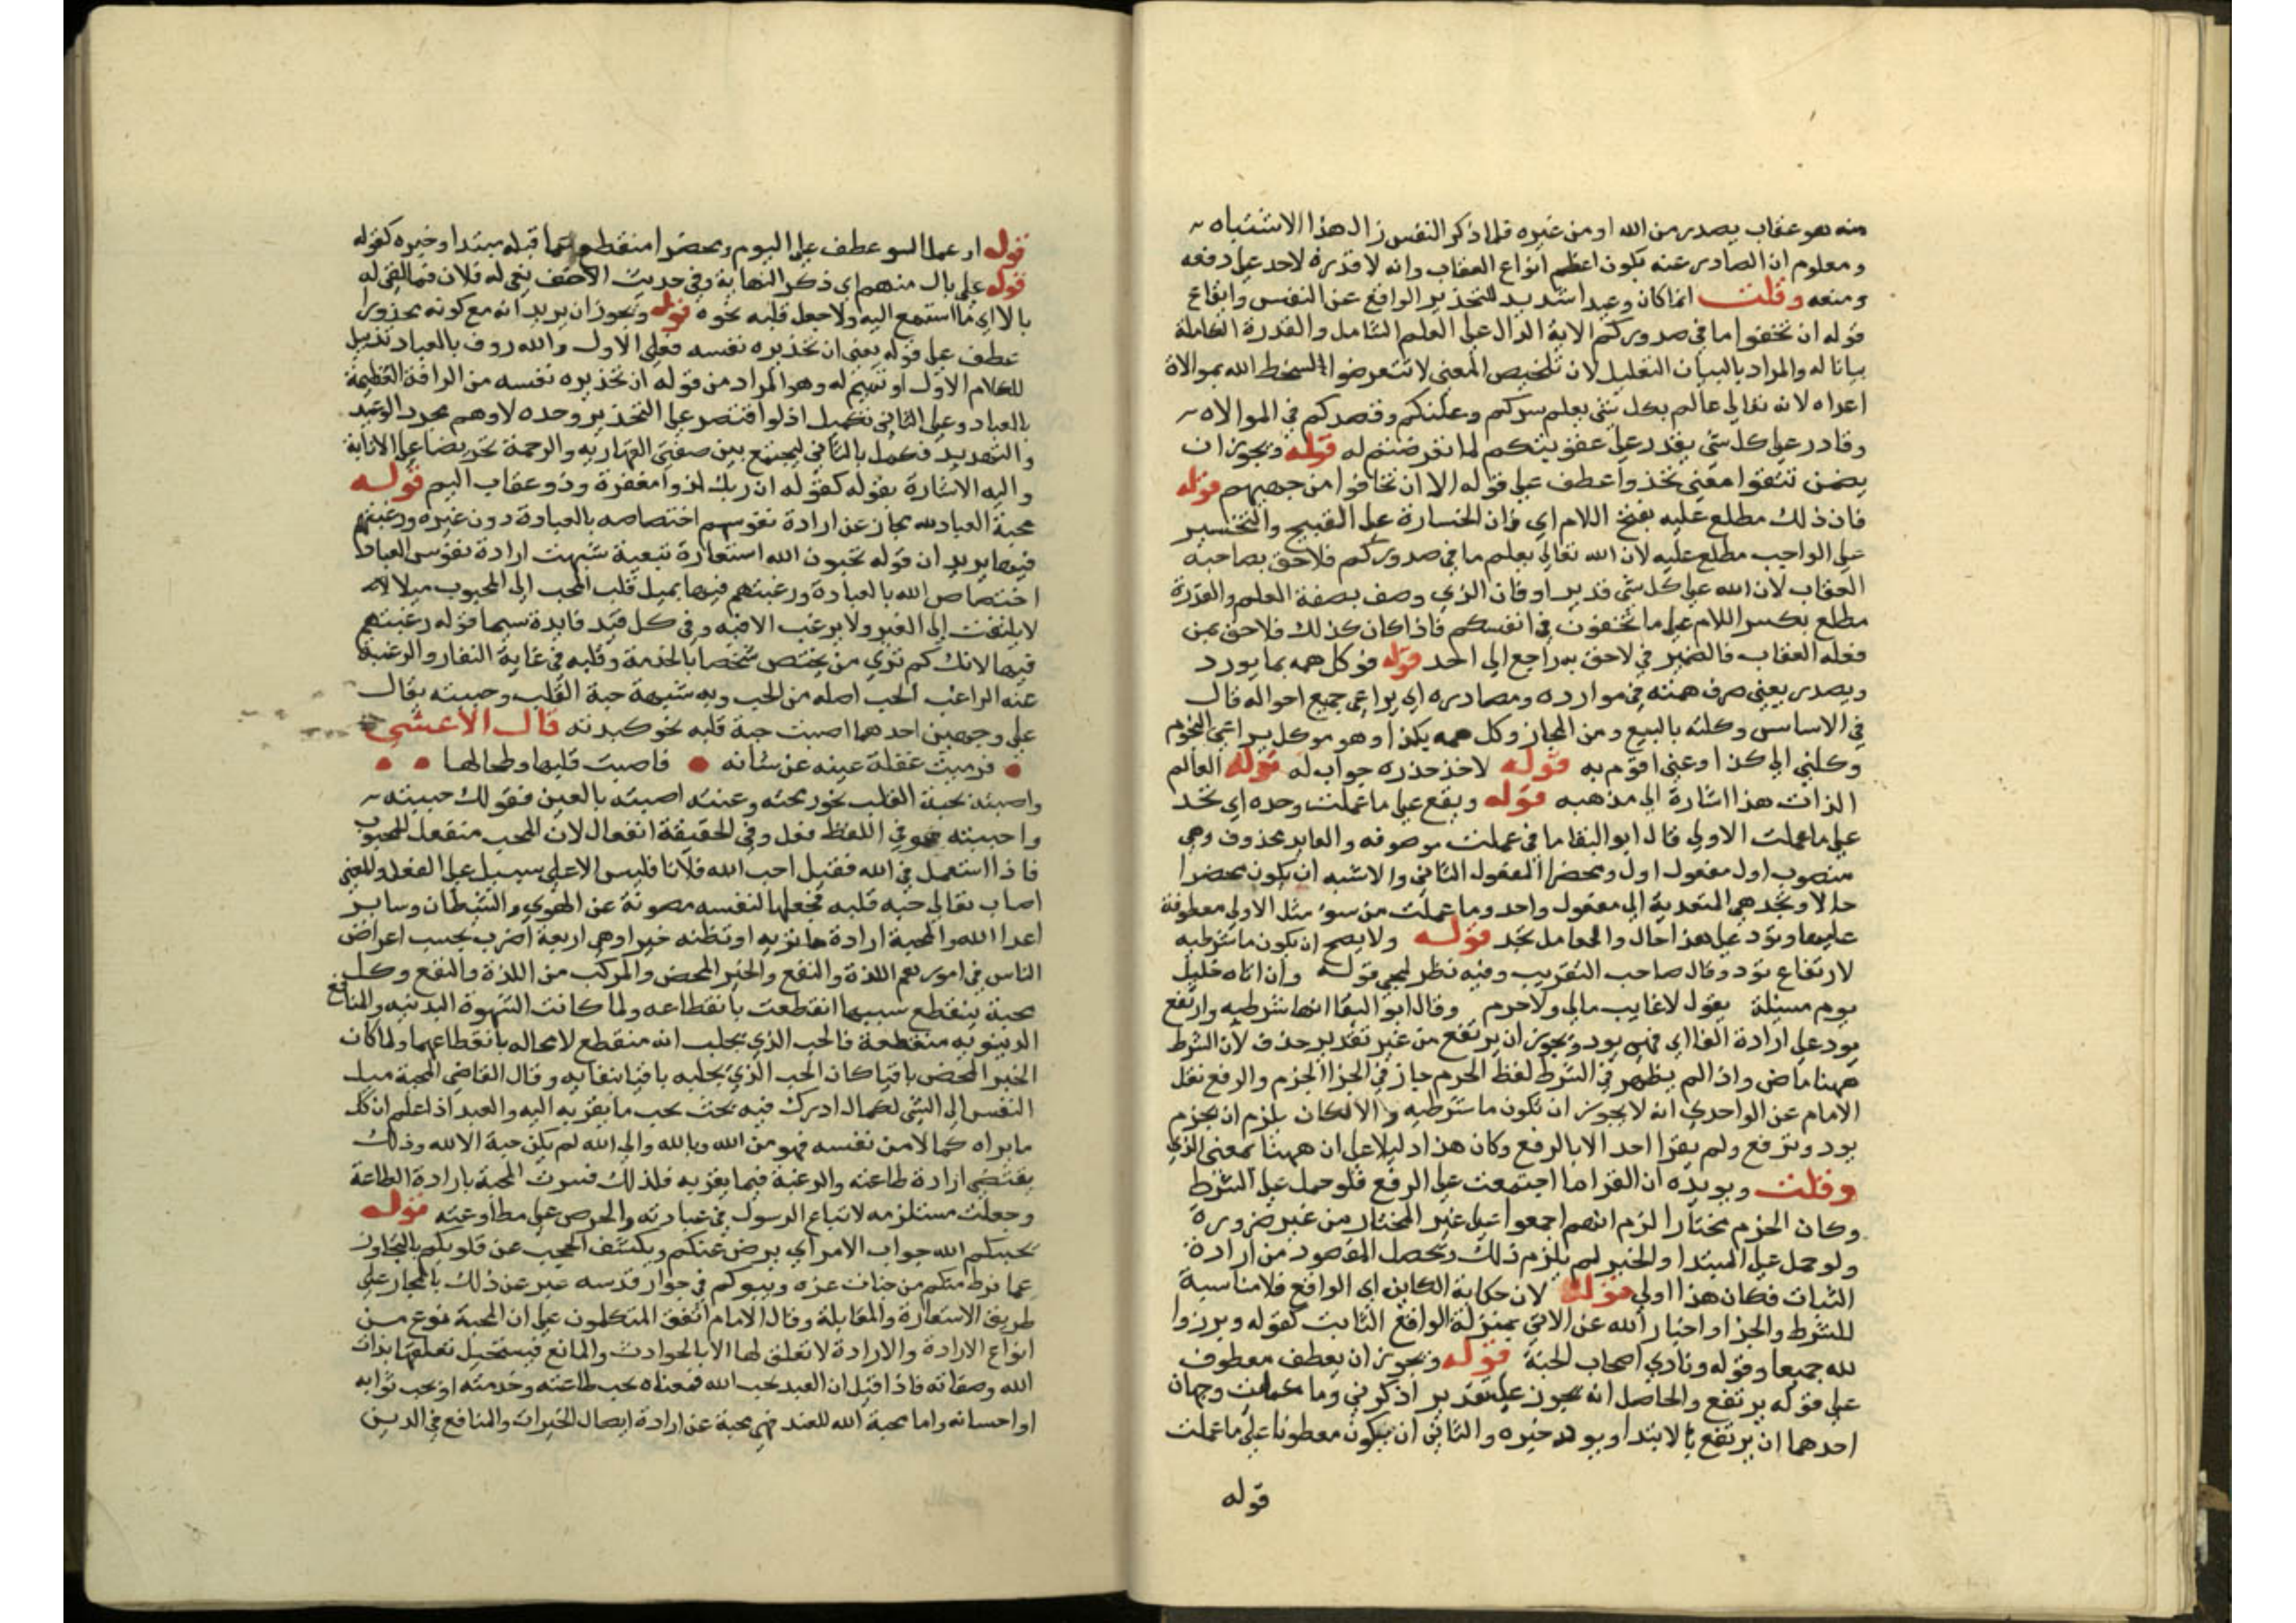 منه هو عقاب يصدر من الله او من غيره فلما ذكر النفس زال هذا الاشتباه
ومعلوم ان الصادر عنه يكون اعظم انواع العقاب وانه لا قدرة لاحد على دفعه
ومنعه وقلت انما كان وعيدا شديد للتحذير الواقع عن النفس وايقاع
قوله ان تخفوا ما في صدوركم الاية الدال على العلم الشامل والقدرة الكاملة
بيانا له والمراد بالبيان التعليل لان تلخيص المعنى لا تتعرضوا لسخط الله بموالاة
اعداه لانه تعالى عالم بكل شي يعلم سركم وعلنكم وقصدكم في الموالاه
وقادر على كل شي يقدر على عقوبتكم لما تعرضتم له قوله ويجوز ان
يضمن تتقوا معنى تحذوا عطف على قوله الا ان تخافوا من جهتهم قوله
فان ذلك مطلع عليه بفتح اللام اي فان الخسارة على القبيح والتخسير
على الواجب مطلع عليه لان الله تعالى يعلم ما في صدوركم فلاحق بصاحبه
العقاب لان الله على كل شي قدير او فان الذي وصف بصفة العلم والقدرة
مطلع بكسر اللام على ما تخفون في انفسكم فاذا كان كذلك فلاحق بمن
فعله العقاب فالضمير في لاحق به راجع الى احد قوله فوكل همه بما يورد
ويصدر يعني صرف همته في موارده ومصادره اي يراعى جميع احواله قال
في الاساس وكلته بالبيع ومن المجاز وكل همه بكذا وهو موكل براعي النجوم
وكلني الى كذا دعني اقوم به قوله لاخذ حذره جواب له قوله العالم
الذات هذا اشارة الى مذهبه قوله ويقع على ما عملت وحده اي تجد
على ما عملت الاولى قال ابو البقا ما في عملت موصوفه والعايد محذوف وهي
منصوب اول مفعول اول ومحضرا المفعول الثاني والاشبه ان يكون محضرا
حالا وتجد هي المتعدية الى مفعول واحد وما عملت من سوء مثل الاولى معطوفة
عليها وتود على هذا حال والعامل تجد قوله ولا يصح ان يكون ما شرطيه
لارتفاع تود وقال صاحب التقريب وفيه نظر لمجي قوله وان اتاه خليل
يوم مسئلة يقول لا غايب مالي ولا حرم وقال ابو البقا انها شرطيه وارتفع
يود على ارادة الفا اي فهي يود ويجوز ان يرتفع من غير تقدير حذف لان الشرط
ههنا ماض واذا لم يظهر في الشرط لفظ الجزم جاز في الجزا الجزم والرفع نقل
الامام عن الواحدي انه لا يجوز ان تكون ما شرطيه والا لكان يلزم ان يجزم
يود وترفع ولم يقرا احد الا بالرفع وكان هذا دليلا على ان ههنا بمعنى الذي
وقلت ويويده ان القرا ما اجتمعت على الرفع فلو حمل على الشرط
وكان الجزم مختارا لزم انهم اجمعوا على غير المختار من غير ضرورة
ولو حمل على المبتدا والخبر لم يلزم ذلك ويحصل المقصود من ارادة
الثبات فكان هذا اولى قوله لان حكاية الكاين اي الواقع فلا مناسبة
للشرط والجزا واخبار الله عن الاتي بمنزلة الواقع الثابت كقوله وبرزوا
لله جميعا وقوله ونادي اصحاب الجنة قوله ويجوز ان يعطف معطوف
على قوله يرتفع والحاصل انه يجوز على تقدير اذكر في وما عملت وجهان
احدهما ان يرتفع بالابتدا ويود خبره والثاني ان يكون معطوفا على ما عملت
قوله
قوله او عملا السو عطف على اليوم ومحضرا منقطع عما قبله مبتدا وخبره كقوله
قوله على بال منهم اي ذكر النهاية وفي حديث الاحنف نعى له فلان فما القى له
بالا اي ما استمع اليه ولا جعل قلبه نحوه قوله ويجوز ان يريد انه مع كونه محذورا
عطف على قوله يعنى ان تحذيره نفسه فعلى الاول والله روف بالعباد تذييل
للكلام الاول او تتميم له وهو المراد من قوله ان تحذيره نفسه من الرافة العظيمة
بالعباد وعلى الثاني تكميل اذ لو اقتصر على التحذير وحده لاوهم مجرد الوعيد
والتهديد فكمل بالثاني ليجتمع بين صفتي القهاريه والرحمة تحريضا على الانابة
واليه الاشارة بقوله كقوله ان ربك لذوا مغفرة وذو عقاب اليم قوله
محبة العباد لله مجاز عن ارادة نفوسهم اختصاصه بالعبادة دون غيره ورغبتهم
فيها يريد ان قوله تحبون الله استعارة تبعية شبهت ارادة نفوس العباد
اختصاص الله بالعبادة ورغبتهم فيها بميل قلب المحب الى المحبوب ميلا
لا يلتفت الى الغير ولا يرغب الا فيه وفي كل قيد فايدة سيما قوله رغبتهم
فيها لانك كم ترى من يختص شخصا بالخدمة وقلبه في غاية النفار والرغبة
عنه الراغب الحب اصله من الحب وبه شبيهة حبة القلب وحببته يقال
على وجهين احدهما اصبت حبة قلبه نحو كبدته قال الاعشى
فرميت غفلة عينه عن شاته فاصبت قلبها وطحالها
واصبته بحبة القلب نحو رمحته وعنته اصبته بالعين فقولك حببته
واحببته هو في اللفظ فعل وفي الحقيقة انفعال لان المحب منفعل للمحبوب
فاذا استعمل في الله فقيل احب الله فلانا فليس الا على سبيل على الفعل والمعنى
اصاب تعالى حبه قلبه فجعلها لنفسه مصونة عن الهوى والشيطان وساير
اعدا الله والمحبة ارادة ما تريه او تظنه خيرا وهي اربعة اضرب بحسب اعراض
الناس في امورهم اللذة والنفع والخير المحض والمركب من اللذة والنفع وكل
محبة ينقطع سببها انقطعت بانقطاعه ولما كانت الشهوة البدنيه والمنافع
الدنيويه منقطعة فالحب الذي يجلب انه منقطع لا محاله بانقطاعهما ولما كان
الخير المحض باقيا كان الحب الذي يجلبه باقيا ببقايه وقال القاضي المحبة ميل
النفس الى الشي لكمال ادرك فيه بحث يحب ما يقربه اليه والعبد اذا علم ان كل
ما يراه كمالا من نفسه فهو من الله وبالله والى الله لم يكن حبه الا لله وذلك
يقتضي ارادة طاعته والرغبة فيما يقربه فلذلك فسرت المحبة بارادة الطاعة
وجعلت مستلزمه لاتباع الرسول في عبادته والحرص على مطاوعته قوله
يحببكم الله جواب الامر اي يرض عنكم ويكشف الحجب عن قلوبكم بالتجاوز
عما فرط منكم من جنات عزه ويبوكم في جوار قدسه عبر عن ذلك بالمجاز على
طريق الاستعارة والمقابلة وقال الامام اتفق المتكلمون على ان المحبة نوع من
انواع الارادة والارادة لا تعلق لها الا بالحوادث والمانع فيستحيل تعلقها بذات
الله وصفاته فاذا قيل ان العبد يحب الله فمعناه يحب طاعته وخدمته او يحب ثوابه
او احسانه واما محبة الله للعبد فهي محبة عن ارادة ايصال الخيرات والمنافع في الدين